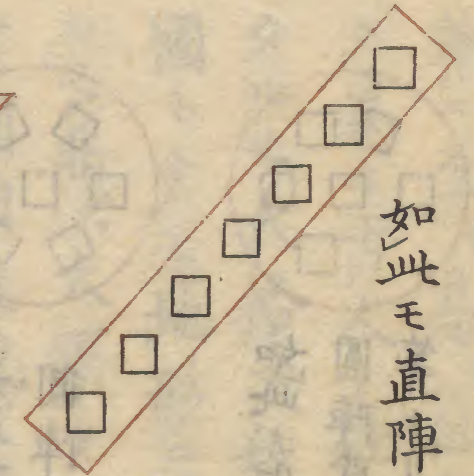 如レ此モ直陣